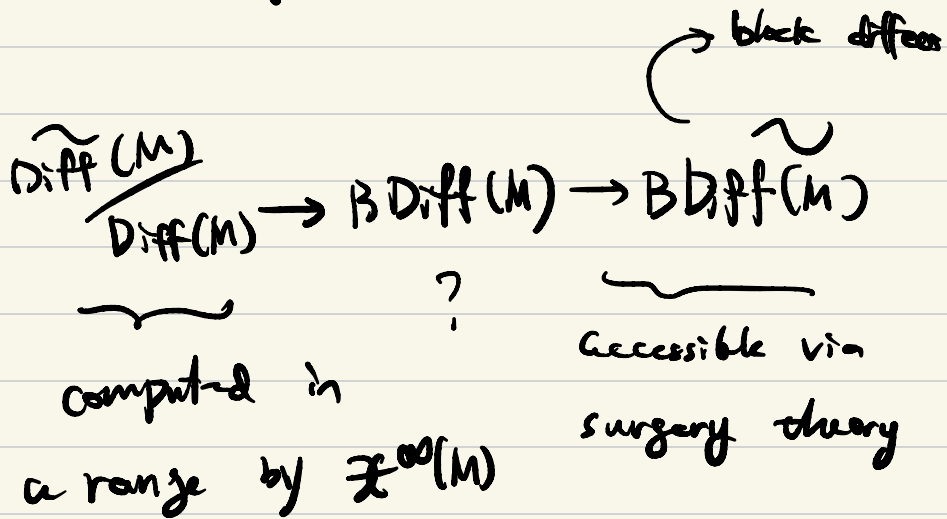 block diffeos
\widetilde{Diff}(M) / Diff(M) → B Diff(M) → B \widetilde{Diff}(M)
?
computed in
a range by ℋ^∞(M)
accessible via
surgery theory